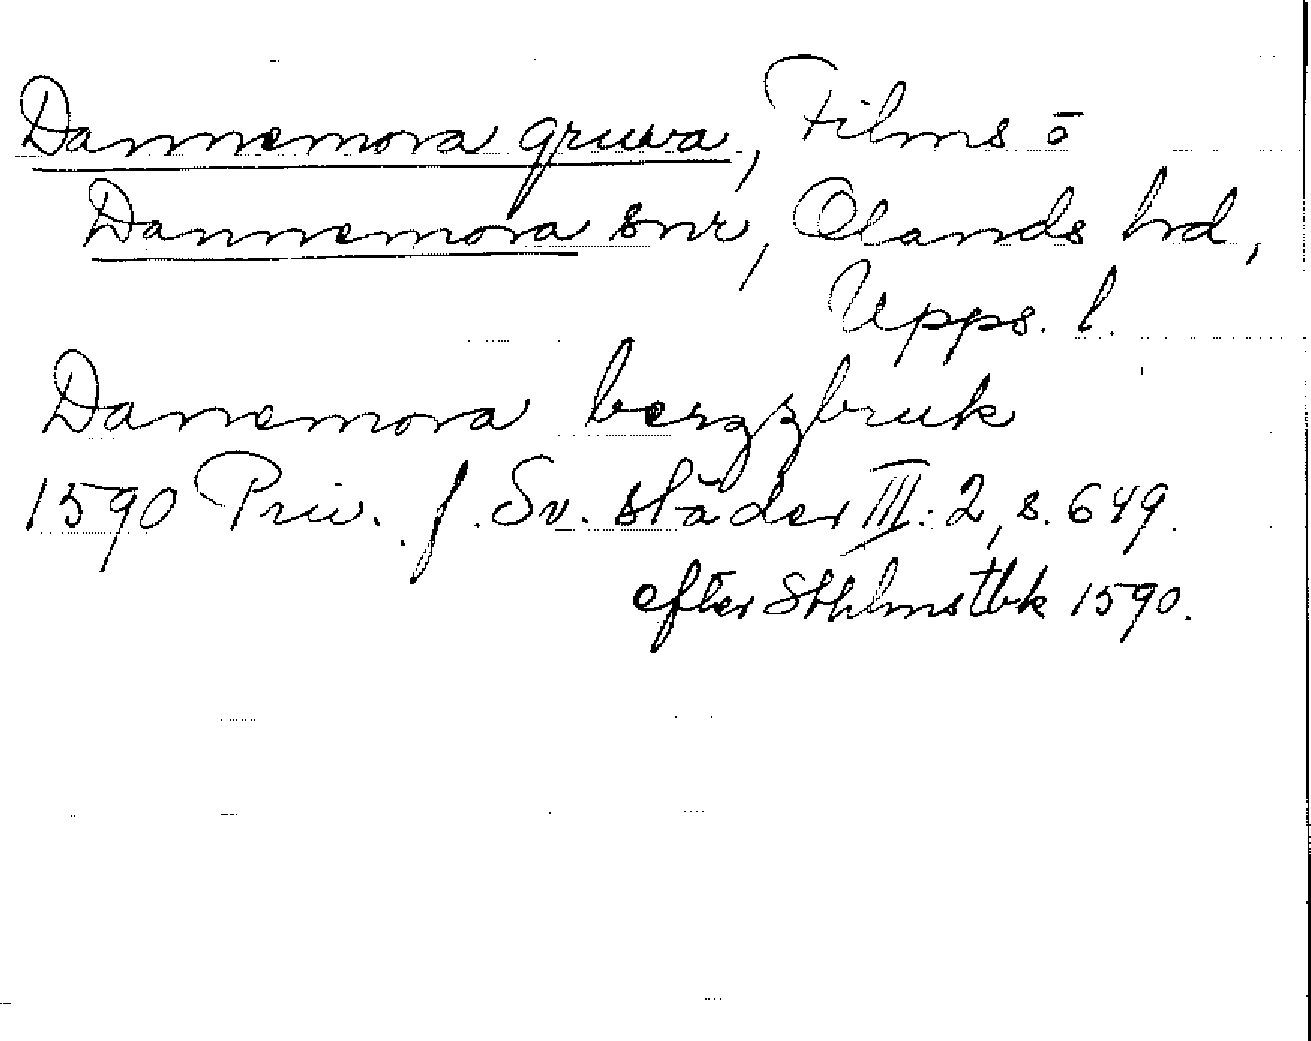 Dannemora gruva, Films o
Dannemora snr, Olands hrd,
Upps. l.
Dannemora bergzbruk
1590 Priv. f. Sv. städer III: 2, s. 649.
efter Sthlmstbk 1590.